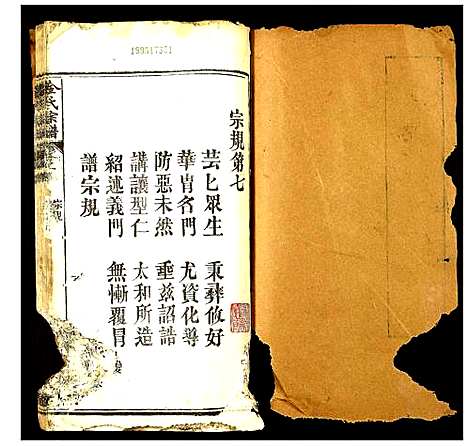 199517301
宗規第七
芸匕眾生 秉彛攸好
華胄名門 尤資化導
防惡未然 垂茲詔誥
講讓型仁 太和所造
紹述義門 無慚覆冒
譜宗規
金氏宗譜
宗規